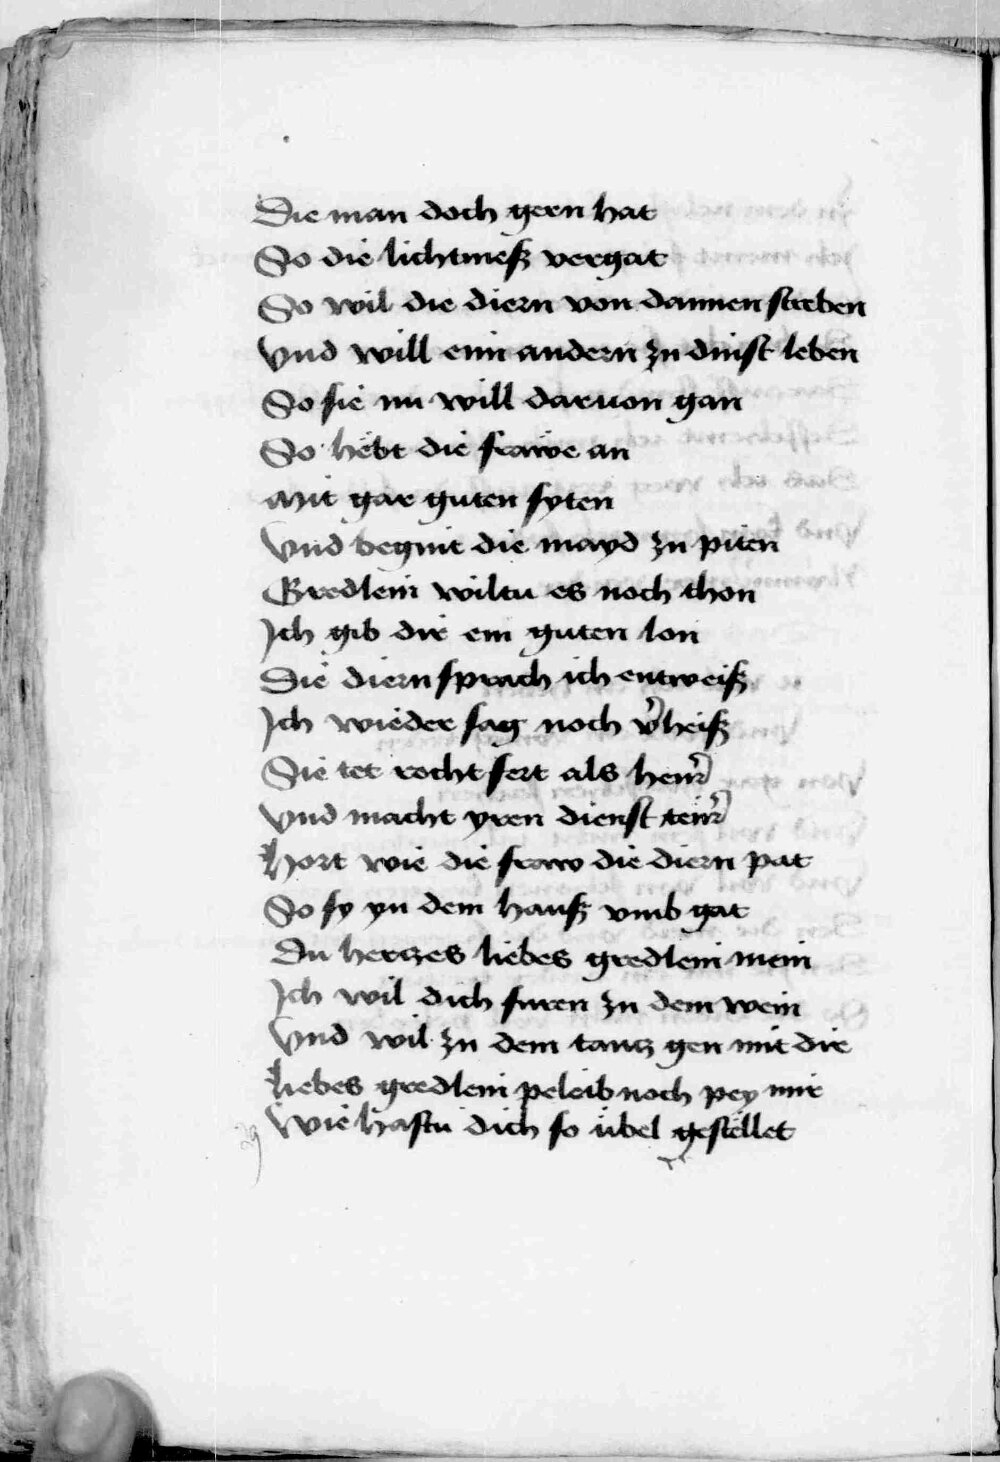 Die man doch gern hat
So die lichtmeß vergat
So wil die diern von dannen streben
Vnd will eim andern zu dinst leben
So sie nu will daruon gan
So hebt die frawe an
Mit gar guten syten
Vnd begint die mayd zu piten
Gredlein wiltu es noch thon
Ich gib dir ein guten lon
Die diern sprach ich entweiß
Ich wieder sag noch v̾heiß
Sie tet recht sert als heur̾
Vnd macht yren dienst teur̾
Hort wie die fraw die diern pat
So sy yn dem hauß vmb gat
Du herczes liebes gredlein mein
Ich wil dich furen zu dem wein
Vnd wil zu dem tantz gen mit dir
Liebes gredlein peleib noch pey mir
Wie hastu dich so übel gestellet